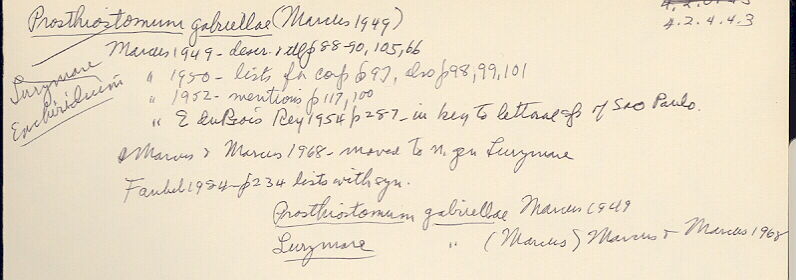 Prosthiostomum gabriellae (Marcus 1949)
4.2.4.4.3
Marcus 1949 - descr. & ill p 88-90, 105, 66
Lurymare
Enchiridium
" 1950 - lists for comp p 97, also p 98, 99, 101
" 1952 - mentions p 117, 100
" E duBois Rey 1954 p 287 - in key to littoral spp of Sao Paulo.
Marcus & Marcus 1968 - moved to n. gen Lurymare
Faubel 1984 - p 234 lists with syn.
Prosthiostomum gabriellae Marcus 1949
Lurymare " (Marcus) Marcus & Marcus 1968